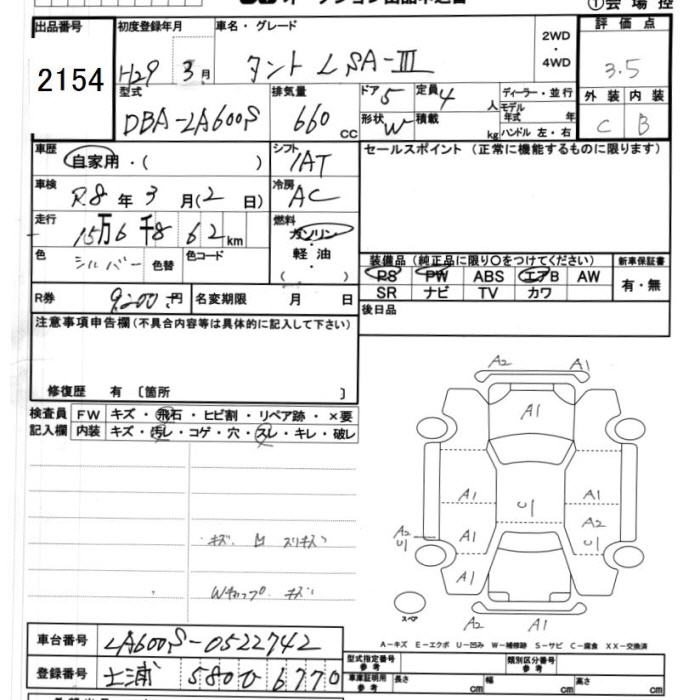 ①会場控
出品番号 2154
初度登録年月 H29 3月
車名・グレード タント L SA-III
2WD・4WD
評価点 3.5
外装 C 内装 B
型式 DBA-LA600S
排気量 660 cc
ドア 5 定員 4 人
形状 W 積載 kg
ディーラー・並行
モデル年式 年
ハンドル 左・右
車歴 自家用・( )
シフト IAT
セールスポイント(正常に機能するものに限ります)
車検 R.8年3月(2日)
冷房 AC
走行 15万6千8 62km
燃料 ガソリン・軽油・( )
色 シルバー 色替 色コード
装備品(純正品に限り〇をつけてください)
PS PW ABS エアB AW
SR ナビ TV カワ
新車保証書 有・無
R券 9,200円 名変期限 月 日
後日品
注意事項申告欄(不具合内容等は具体的に記入して下さい)
修復歴 有〔箇所 〕
検査員記入欄
FW キズ・飛石・ヒビ割・リペア跡・×要
内装 キズ・汚レ・コゲ・穴・スレ・キレ・破レ
A2 A1
A1
A1 U1 A1
A2 U1 A1 A2 U1
A1
A2 A1
スペア
Wキャップ キズ
A-キズ E-エクボ U-凹み W-補修跡 S-サビ C-腐食 XX-交換済
車台番号 LA600S-0522742
登録番号 土浦 580 う 6770
型式指定番号 参考
類別区分番号 参考
車庫証明用 参考 長さ cm 幅 cm 高さ cm